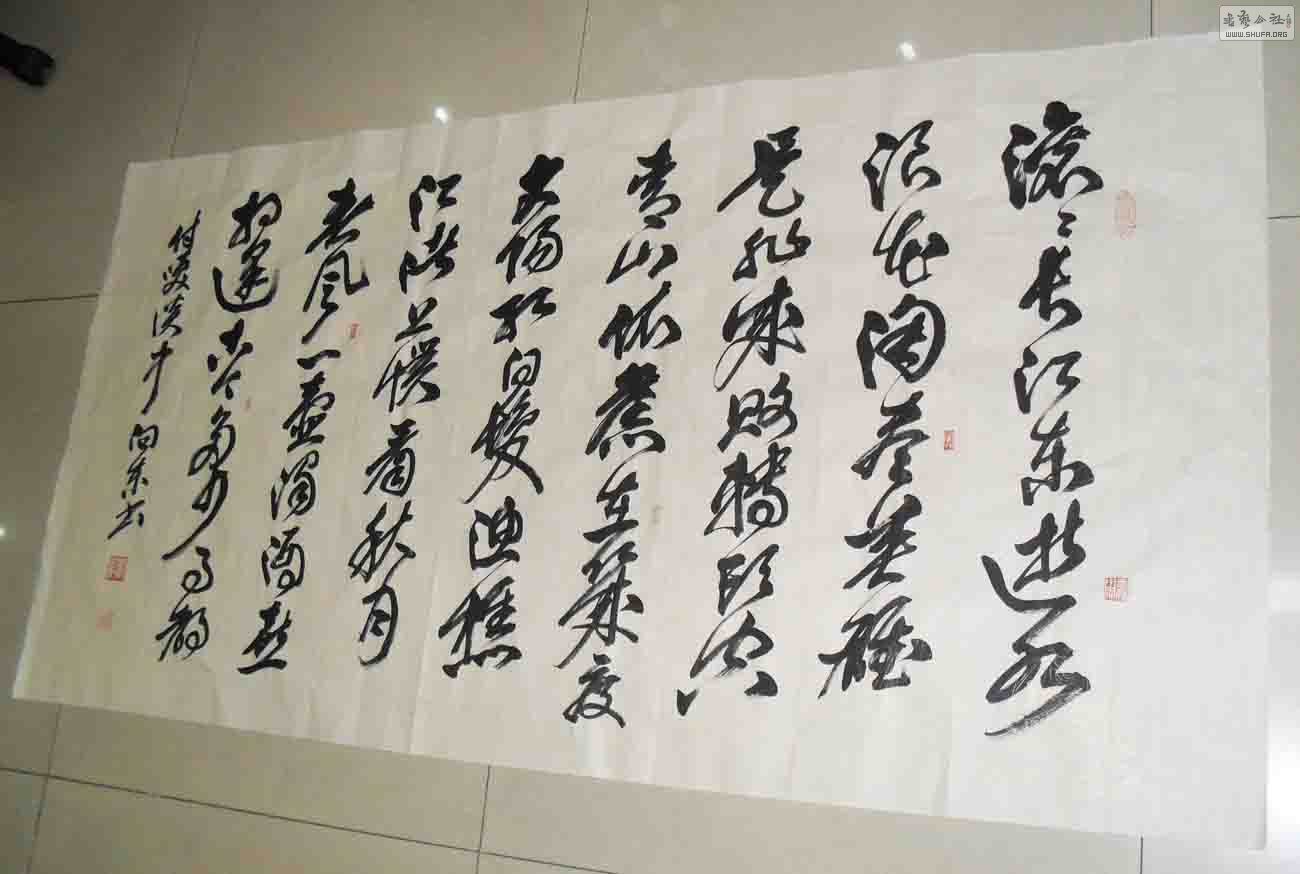 滚滚长江东逝水
浪花淘尽英雄
是非成败轉头空
青山依舊在几度
夕陽红白髮渔樵
江渚上惯看秋月
春风一壶浊酒喜
相逢古今多少事都
付笑谈中 向东书
書藝公社
WWW.SHUFA.ORG